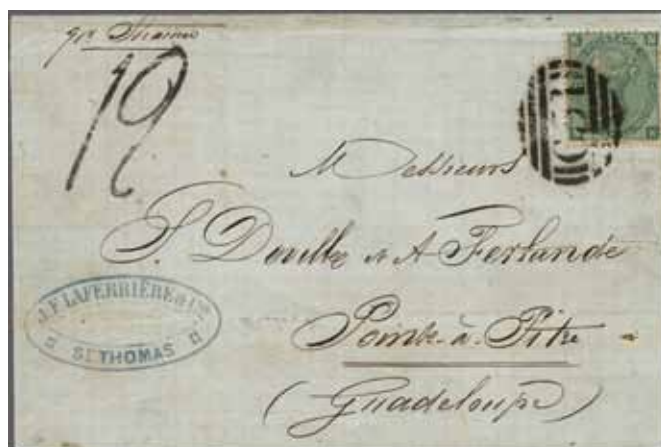 pr
12
Messieurs
S. Doville & A Ferlande
Pointe-à-Pitre
(Guadeloupe)
J. F. LAFERRIÈRE & Co.
ST THOMAS
C51